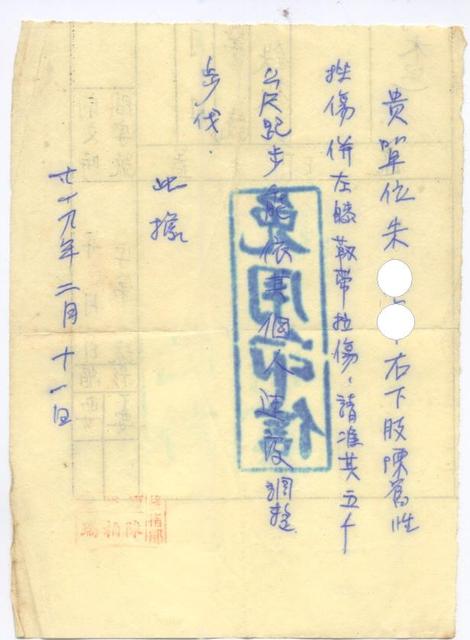 貴單位朱，右下肢陳舊性
挫傷併左膝韌帶拉傷，請准其五千
公尺跑步能依其個人速度調整
步伐．
此據
七十九年二月十一日
免用印信